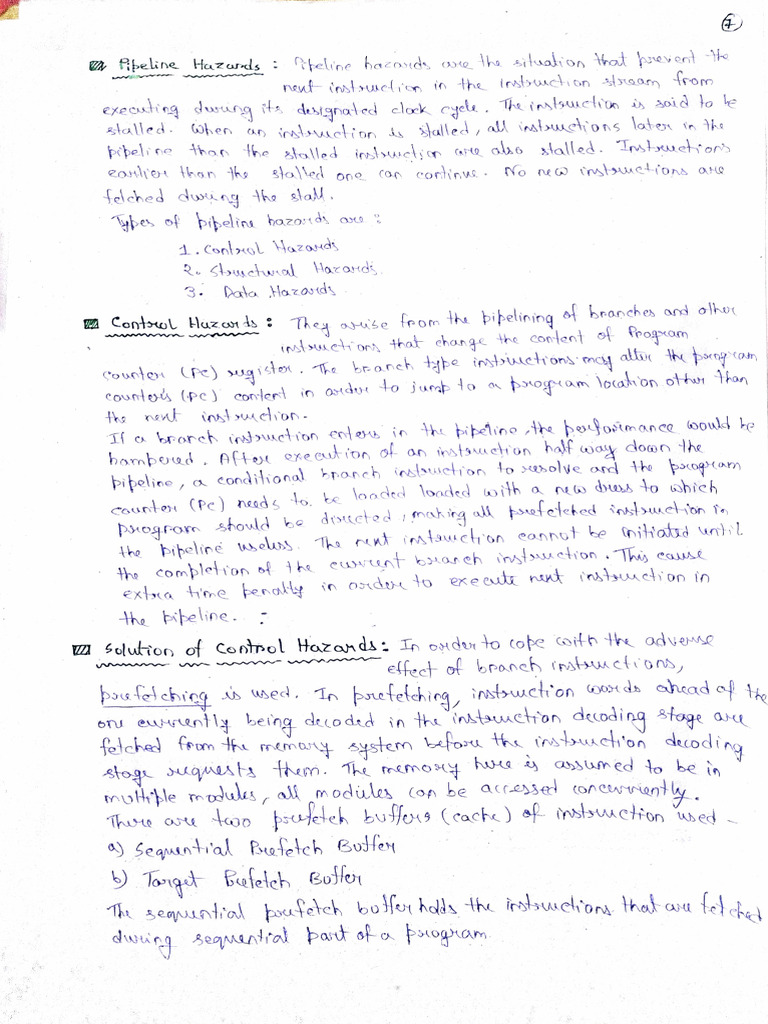 7
Pipeline Hazards : Pipeline hazards are the situation that prevent the
next instruction in the instruction stream from
executing during its designated clock cycle. The instruction is said to be
stalled. When an instruction is stalled, all instructions later in the
pipeline than the stalled instruction are also stalled. Instructions
earlier than the stalled one can continue. No new instructions are
fetched during the stall.
Types of pipeline hazards are :
1. Control Hazards
2. Structural Hazards
3. Data Hazards
Control Hazards : They arise from the pipelining of branches and other
instructions that change the content of Program
counter (PC) register. The branch type instructions may alter the program
counter's (PC) content in order to jump to a program location other than
the next instruction.
If a branch instruction enters in the pipeline, the performance would be
hampered. After execution of an instruction half way down the
pipeline, a conditional branch instruction to resolve and the program
counter (PC) needs to be loaded loaded with a new dress to which
program should be directed, making all prefetched instruction in
the pipeline useless. The next instruction cannot be initiated until
the completion of the current branch instruction. This cause
extra time penalty in order to execute next instruction in
the pipeline. :
Solution of Control Hazards : In order to cope with the adverse
effect of branch instructions,
prefetching is used. In prefetching, instruction words ahead of the
one currently being decoded in the instruction decoding stage are
fetched from the memory system before the instruction decoding
stage requests them. The memory here is assumed to be in
multiple modules, all modules can be accessed concurrently.
There are two prefetch buffers (cache) of instruction used -
a) Sequential Prefetch Buffer
b) Target Prefetch Buffer
The sequential prefetch buffer holds the instructions that are fetched
during sequential part of a program.